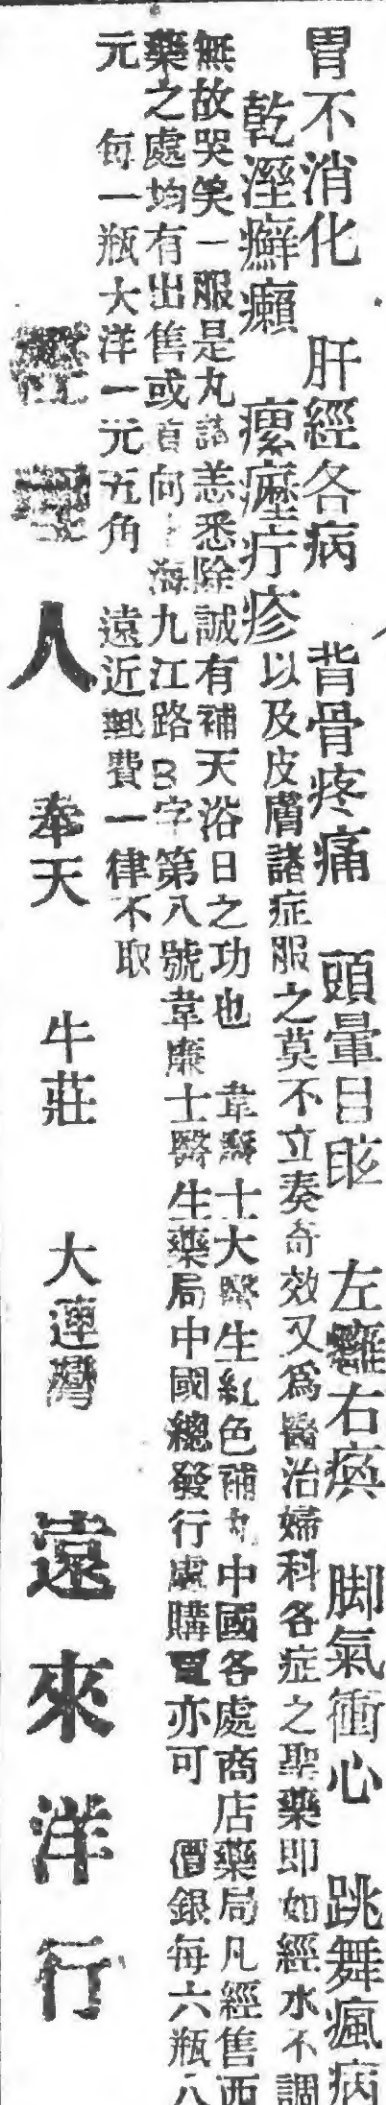 胃不消化　肝經各病　背骨疼痛　頭暈目眩　左癱右瘓　脚氣衝心　跳舞瘋病
乾溼癬癩　瘰癧疔疹以及皮膚諸症服之莫不立奏奇效又爲醫治婦科各症之聖藥即如經水不調
無故哭笑一服是丸諸恙悉除誠有補天浴日之功也　韋廉士大醫生紅色補丸中國各處商店藥局凡經售西
藥之處均有出售或直向上海九江路B字第八號韋廉士醫生藥局中國總發行處購買亦可　價銀每六瓶八
元　每一瓶大洋一元五角　遠近郵費一律不取
人　奉天　牛莊　大連灣　遠來洋行